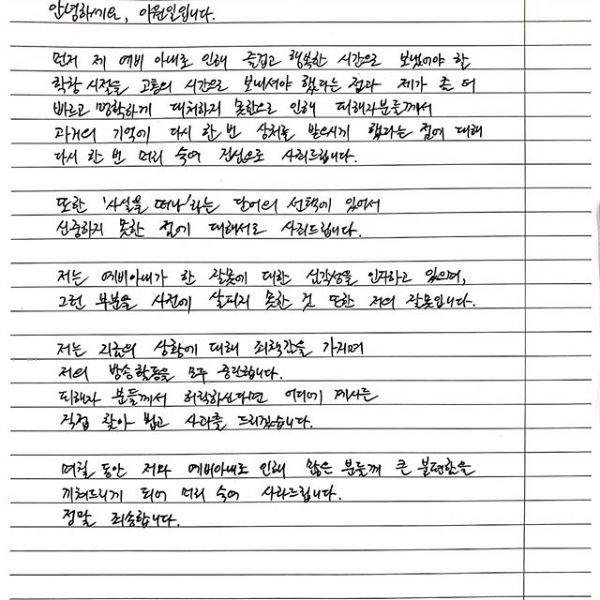 안녕하세요, 이원일입니다.
먼저 제 예비 아내로 인해 즐겁고 행복한 시간으로 보냈어야 한
학창시절을 고통의 시간으로 보내셔야 했다는 점과 제가 좀 더
빠르고 명확하게 대처하지 못함으로 인해 피해자분들께서
과거의 기억에 다시 한 번 상처를 받으시게 했다는 점에 대해
다시 한 번 머리 숙여 진심으로 사죄드립니다.
또한 '사실을 떠나'라는 단어의 선택에 있어서
신중하지 못한 점에 대해서도 사죄드립니다.
저는 예비아내가 한 잘못에 대한 심각성을 인지하고 있으며,
그런 부분을 사전에 살피지 못한 것 또한 저의 잘못입니다.
저는 지금의 상황에 대해 죄책감을 가지며
저의 방송활동을 모두 중단합니다.
피해자 분들께서 허락하신다면 어디에 계시든
직접 찾아 뵙고 사과를 드리겠습니다.
며칠 동안 저와 예비아내로 인해 많은 분들께 큰 불편함을
끼쳐드리게 되어 머리 숙여 사과드립니다.
정말 죄송합니다.